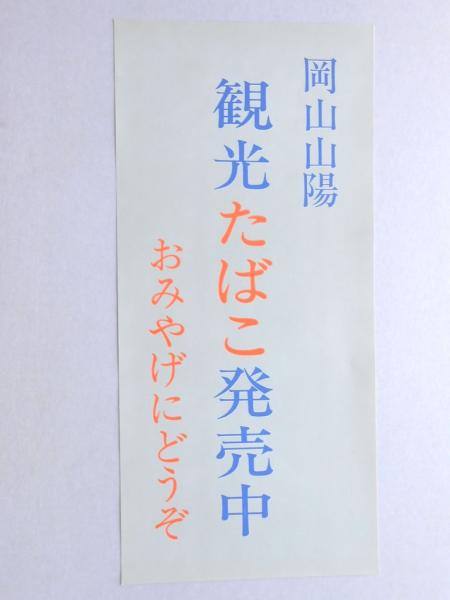 岡山山陽
観光たばこ発売中
おみやげにどうぞ